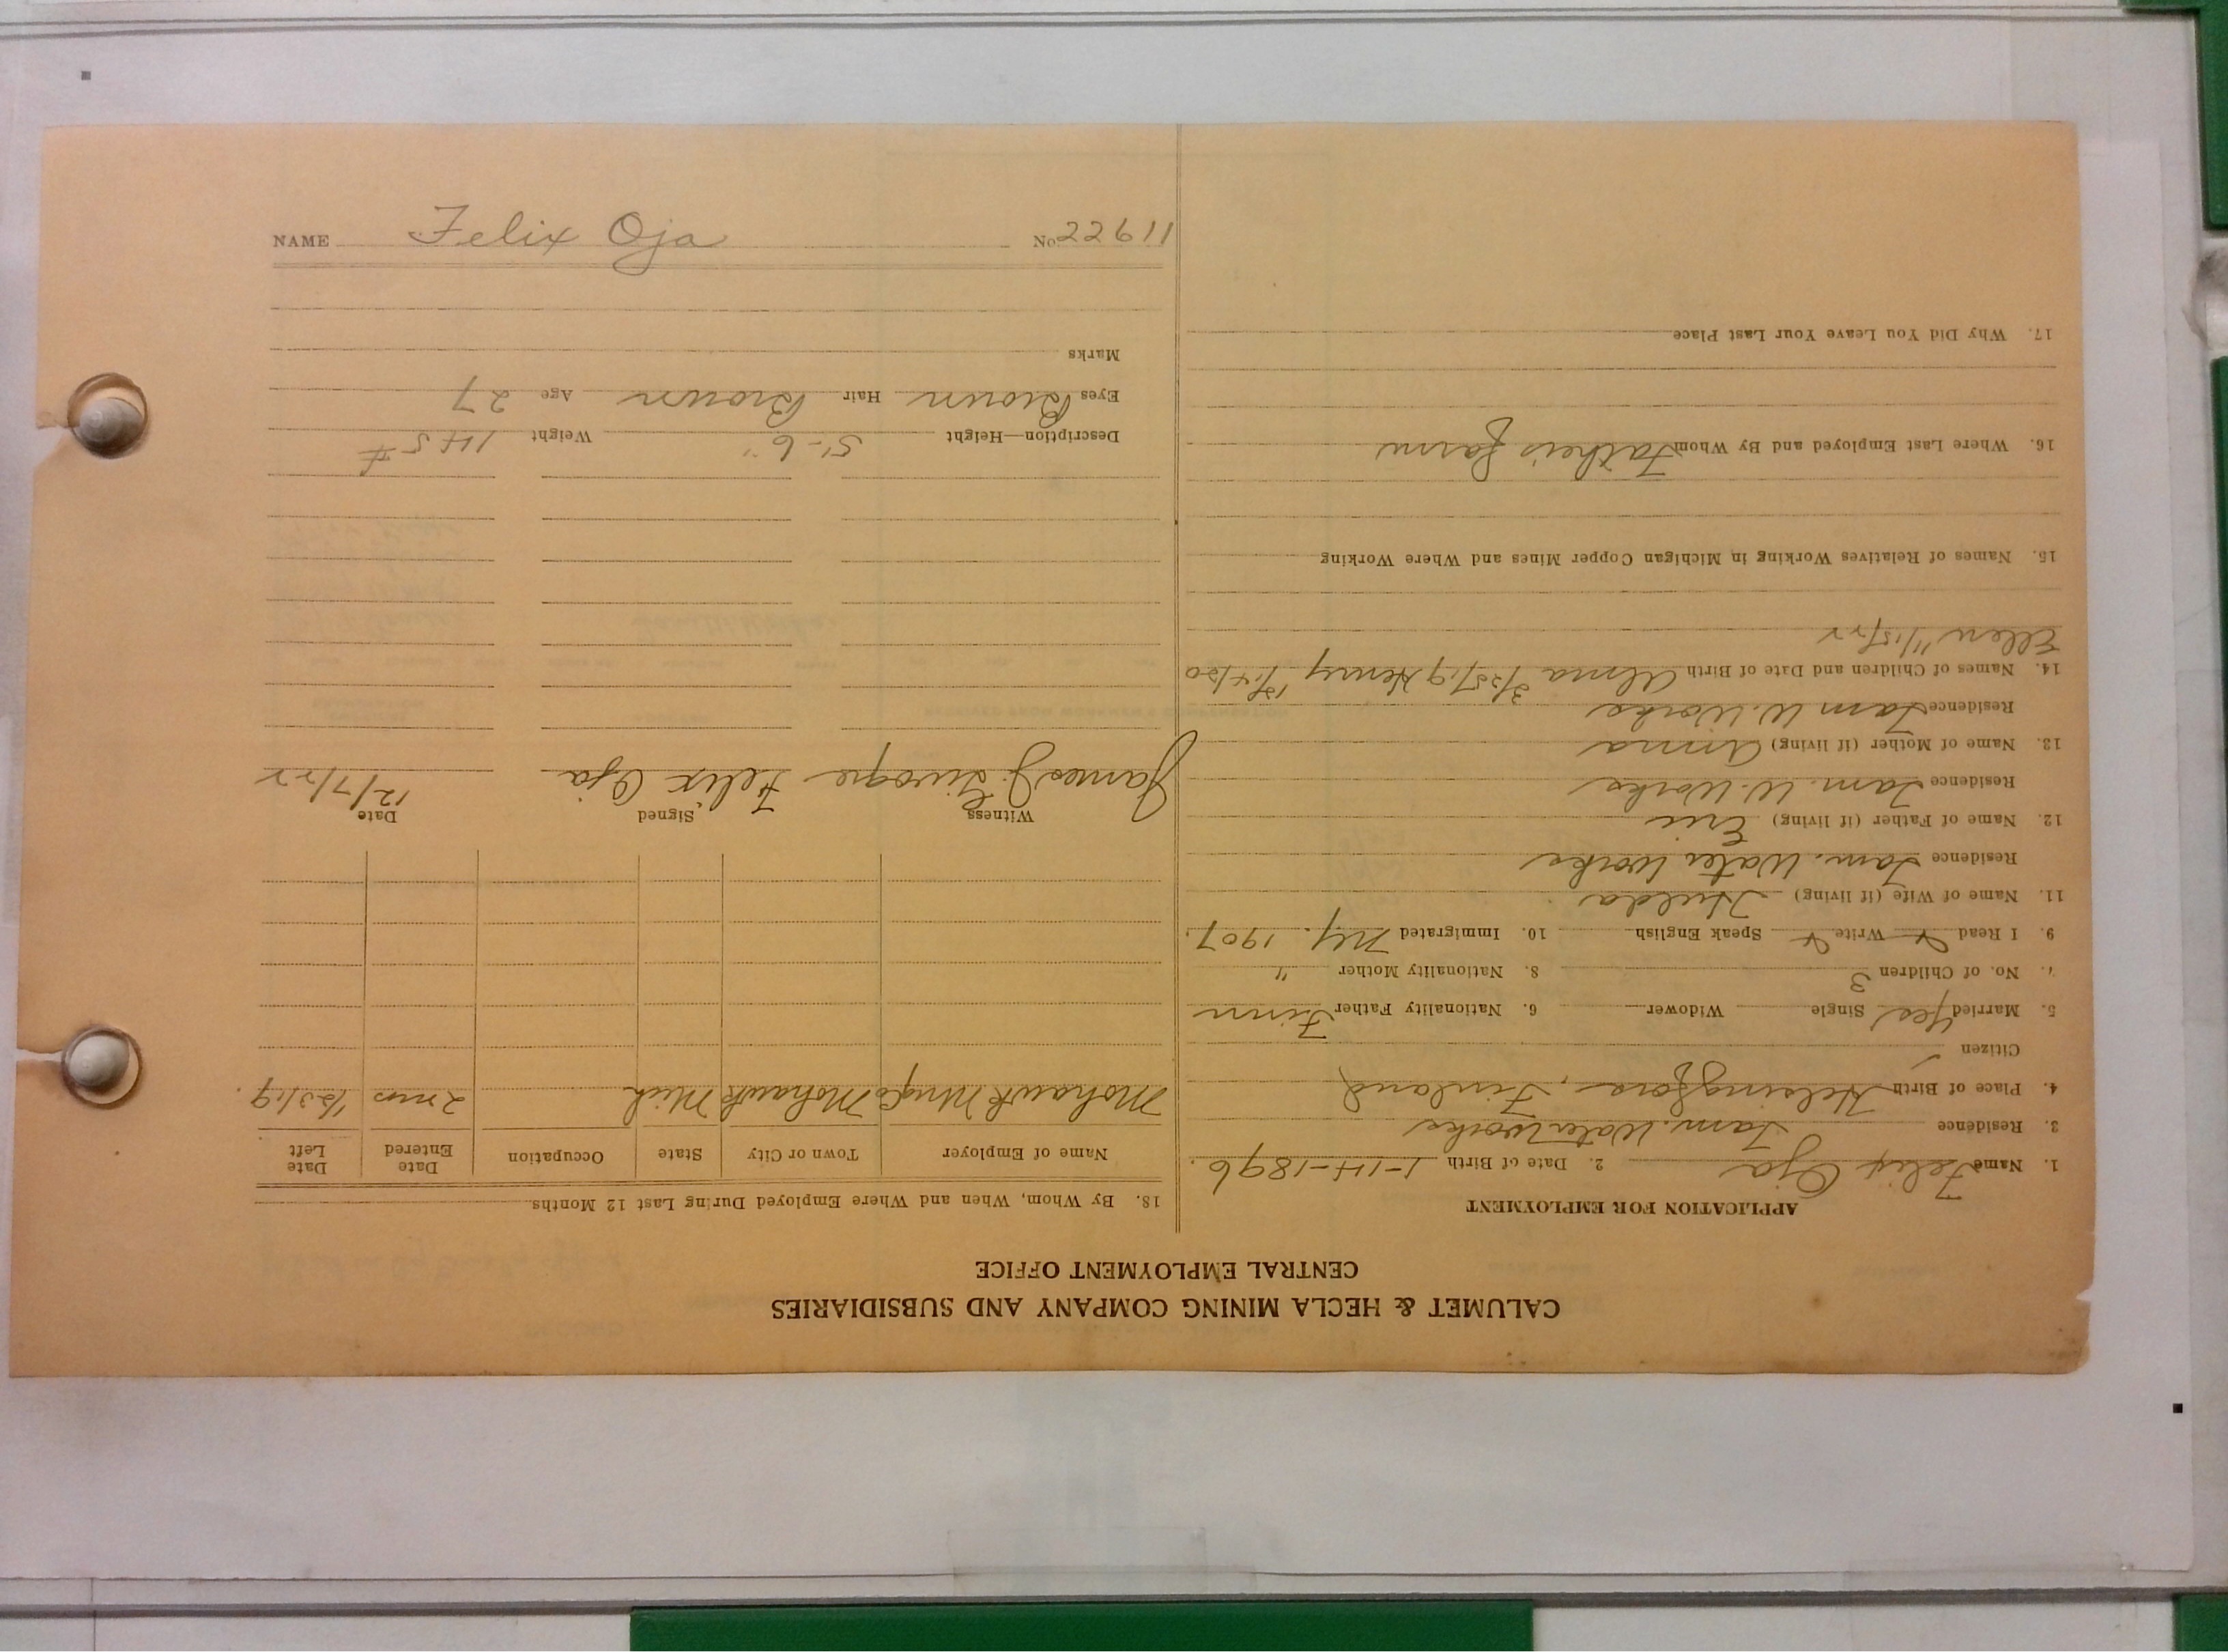 CALUMET & HECLA MINING COMPANY AND SUBSIDIARIES
CENTRAL EMPLOYMENT OFFICE
APPLICATION FOR EMPLOYMENT
1. Name Felix Oja 2. Date of Birth 1-14-1896.
3. Residence Tam. Water Works
4. Place of Birth Helsingfors, Finland
Citizen
5. Married Yes Single Widower 6. Nationality Father Finn
7. No. of Children 3 8. Nationality Mother "
9. I Read Write Speak English 10. Immigrated Ny. 1907.
11. Name of Wife (if living) Hulda
Residence Tam. Water Works
12. Name of Father (if living) Eric
Residence Tam. W. Works
13. Name of Mother (if living) Anna
Residence Tam W. Works
14. Names of Children and Date of Birth Alma 3/25/19 Henry
Ellen 11/15/22
15. Names of Relatives Working in Michigan Copper Mines and Where Working
16. Where Last Employed and By Whom Father's farm
17. Why Did You Leave Your Last Place
18. By Whom, When and Where Employed During Last 12 Months
Name of Employer Town or City State Occupation Date Entered Date Left
Mohawk Mng Co Mohawk Mich 2 mos 1/23/19.
Witness Signed Date
James J. Felix Oja 12/7/22
Description—Height 5'-6" Weight 145 #
Eyes Brown Hair Brown Age 27
Marks
NAME Felix Oja No. 22611